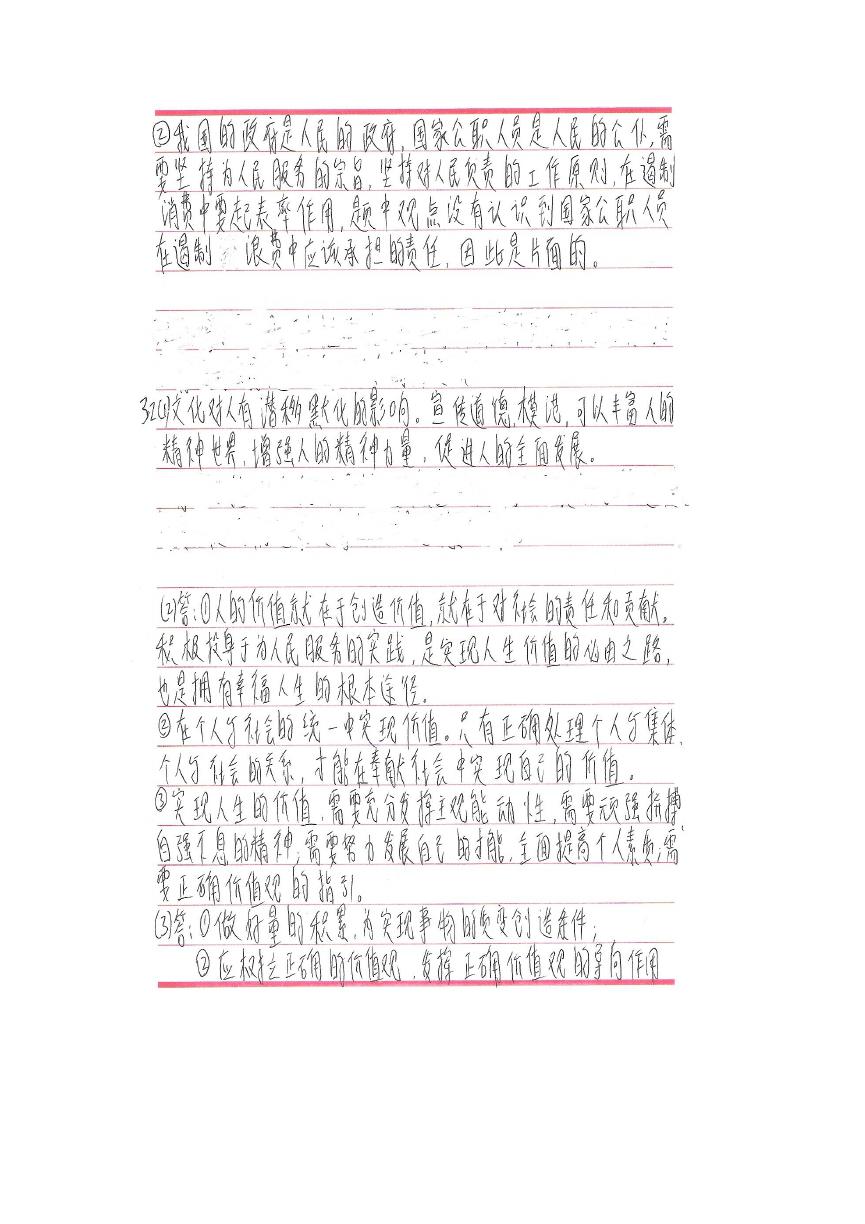 ②我国的政府是人民的政府,国家公职人员是人民的公仆,需
要坚持为人民服务的宗旨,坚持对人民负责的工作原则,在遏制
消费中要起表率作用,题中观点没有认识到国家公职人员
在遏制 浪费中应该承担的责任,因此是片面的。
32(1)文化对人有潜移默化的影响。宣传道德模范,可以丰富人的
精神世界,增强人的精神力量,促进人的全面发展。
(2)答:①人的价值就在于创造价值,就在于对社会的责任和贡献。
积极投身于为人民服务的实践,是实现人生价值的必由之路,
也是拥有幸福人生的根本途径。
②在个人与社会的统一中实现价值。只有正确处理个人与集体、
个人与社会的关系,才能在奉献社会中实现自己的价值。
③实现人生的价值,需要充分发挥主观能动性,需要顽强拼搏、
自强不息的精神;需要努力发展自己的才能,全面提高个人素质;需
要正确价值观的指引。
(3)答:①做好量的积累,为实现事物的质变创造条件;
②应树立正确的价值观,发挥正确价值观的导向作用